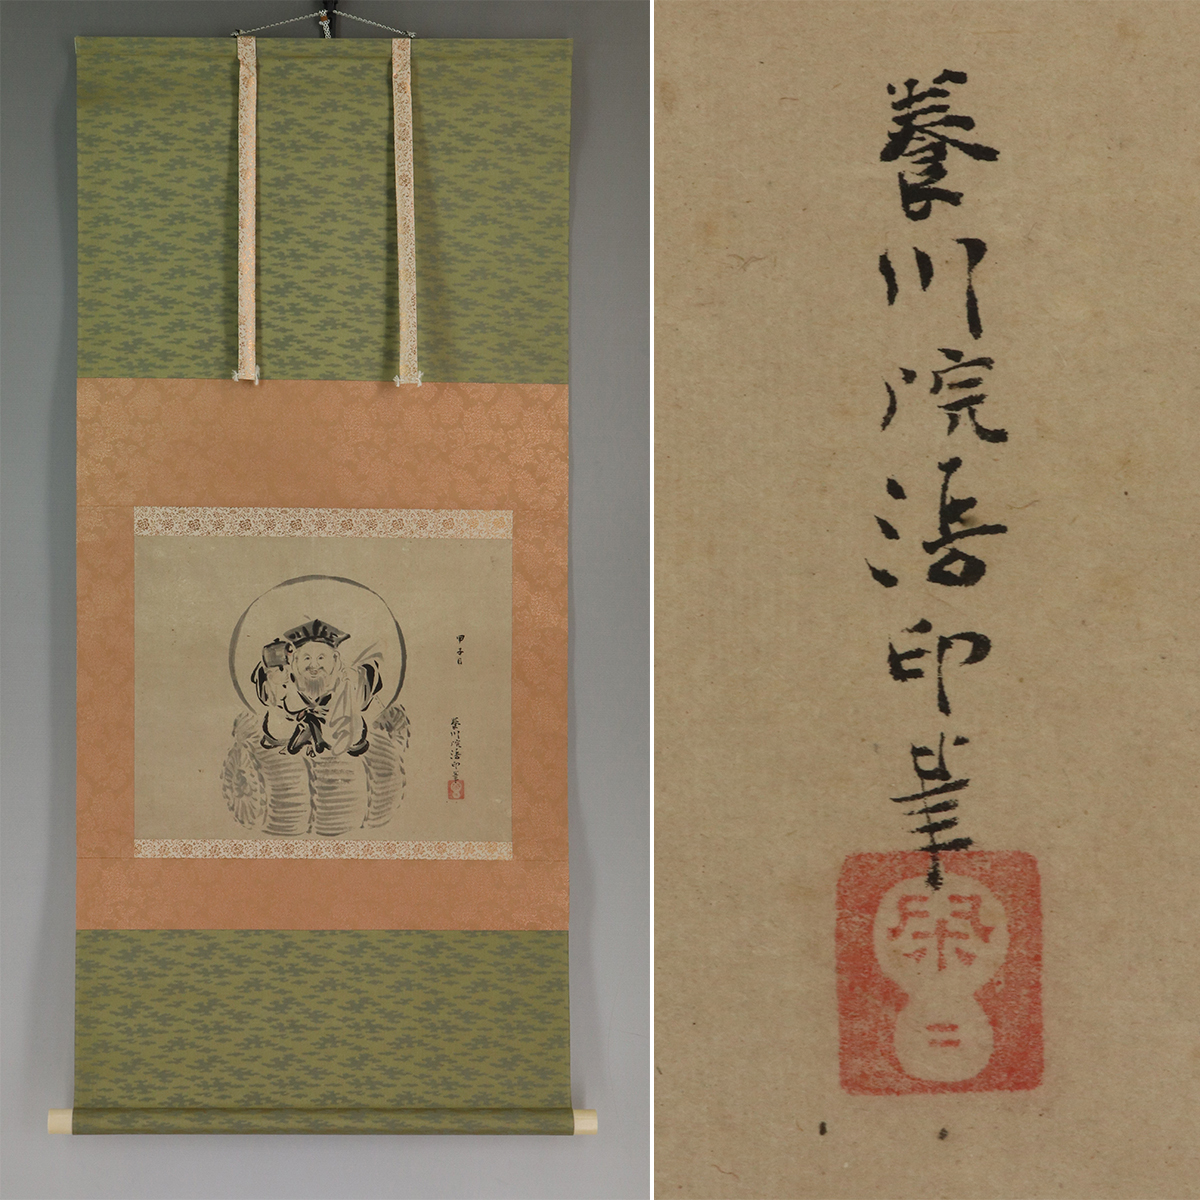 甲子日
養川院法印筆
養川院法印筆